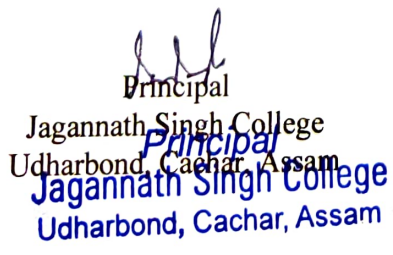 Principal
Jagannath Singh College
Udharbond, Cachar, Assam
Principal
Jagannath Singh College
Udharbond, Cachar, Assam